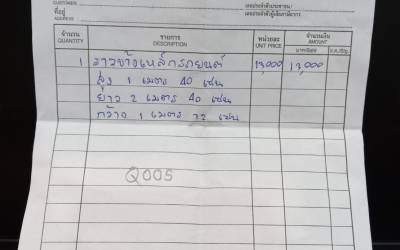 CUSTOMER
เลขประจำตัวประชาชน
ที่อยู่
ADDRESS
เลขประจำตัวผู้เสียภาษีอากร
จำนวน รายการ หน่วยละ จำนวนเงิน
QUANTITY DESCRIPTION UNIT PRICE AMOUNT
1 ราวข้างเหล็กรถยนต์ 13,000 13,000
สูง 1 เมตร 40 เซน
ยาว 2 เมตร 40 เซน
กว้าง 1 เมตร 72 เซน
Q005